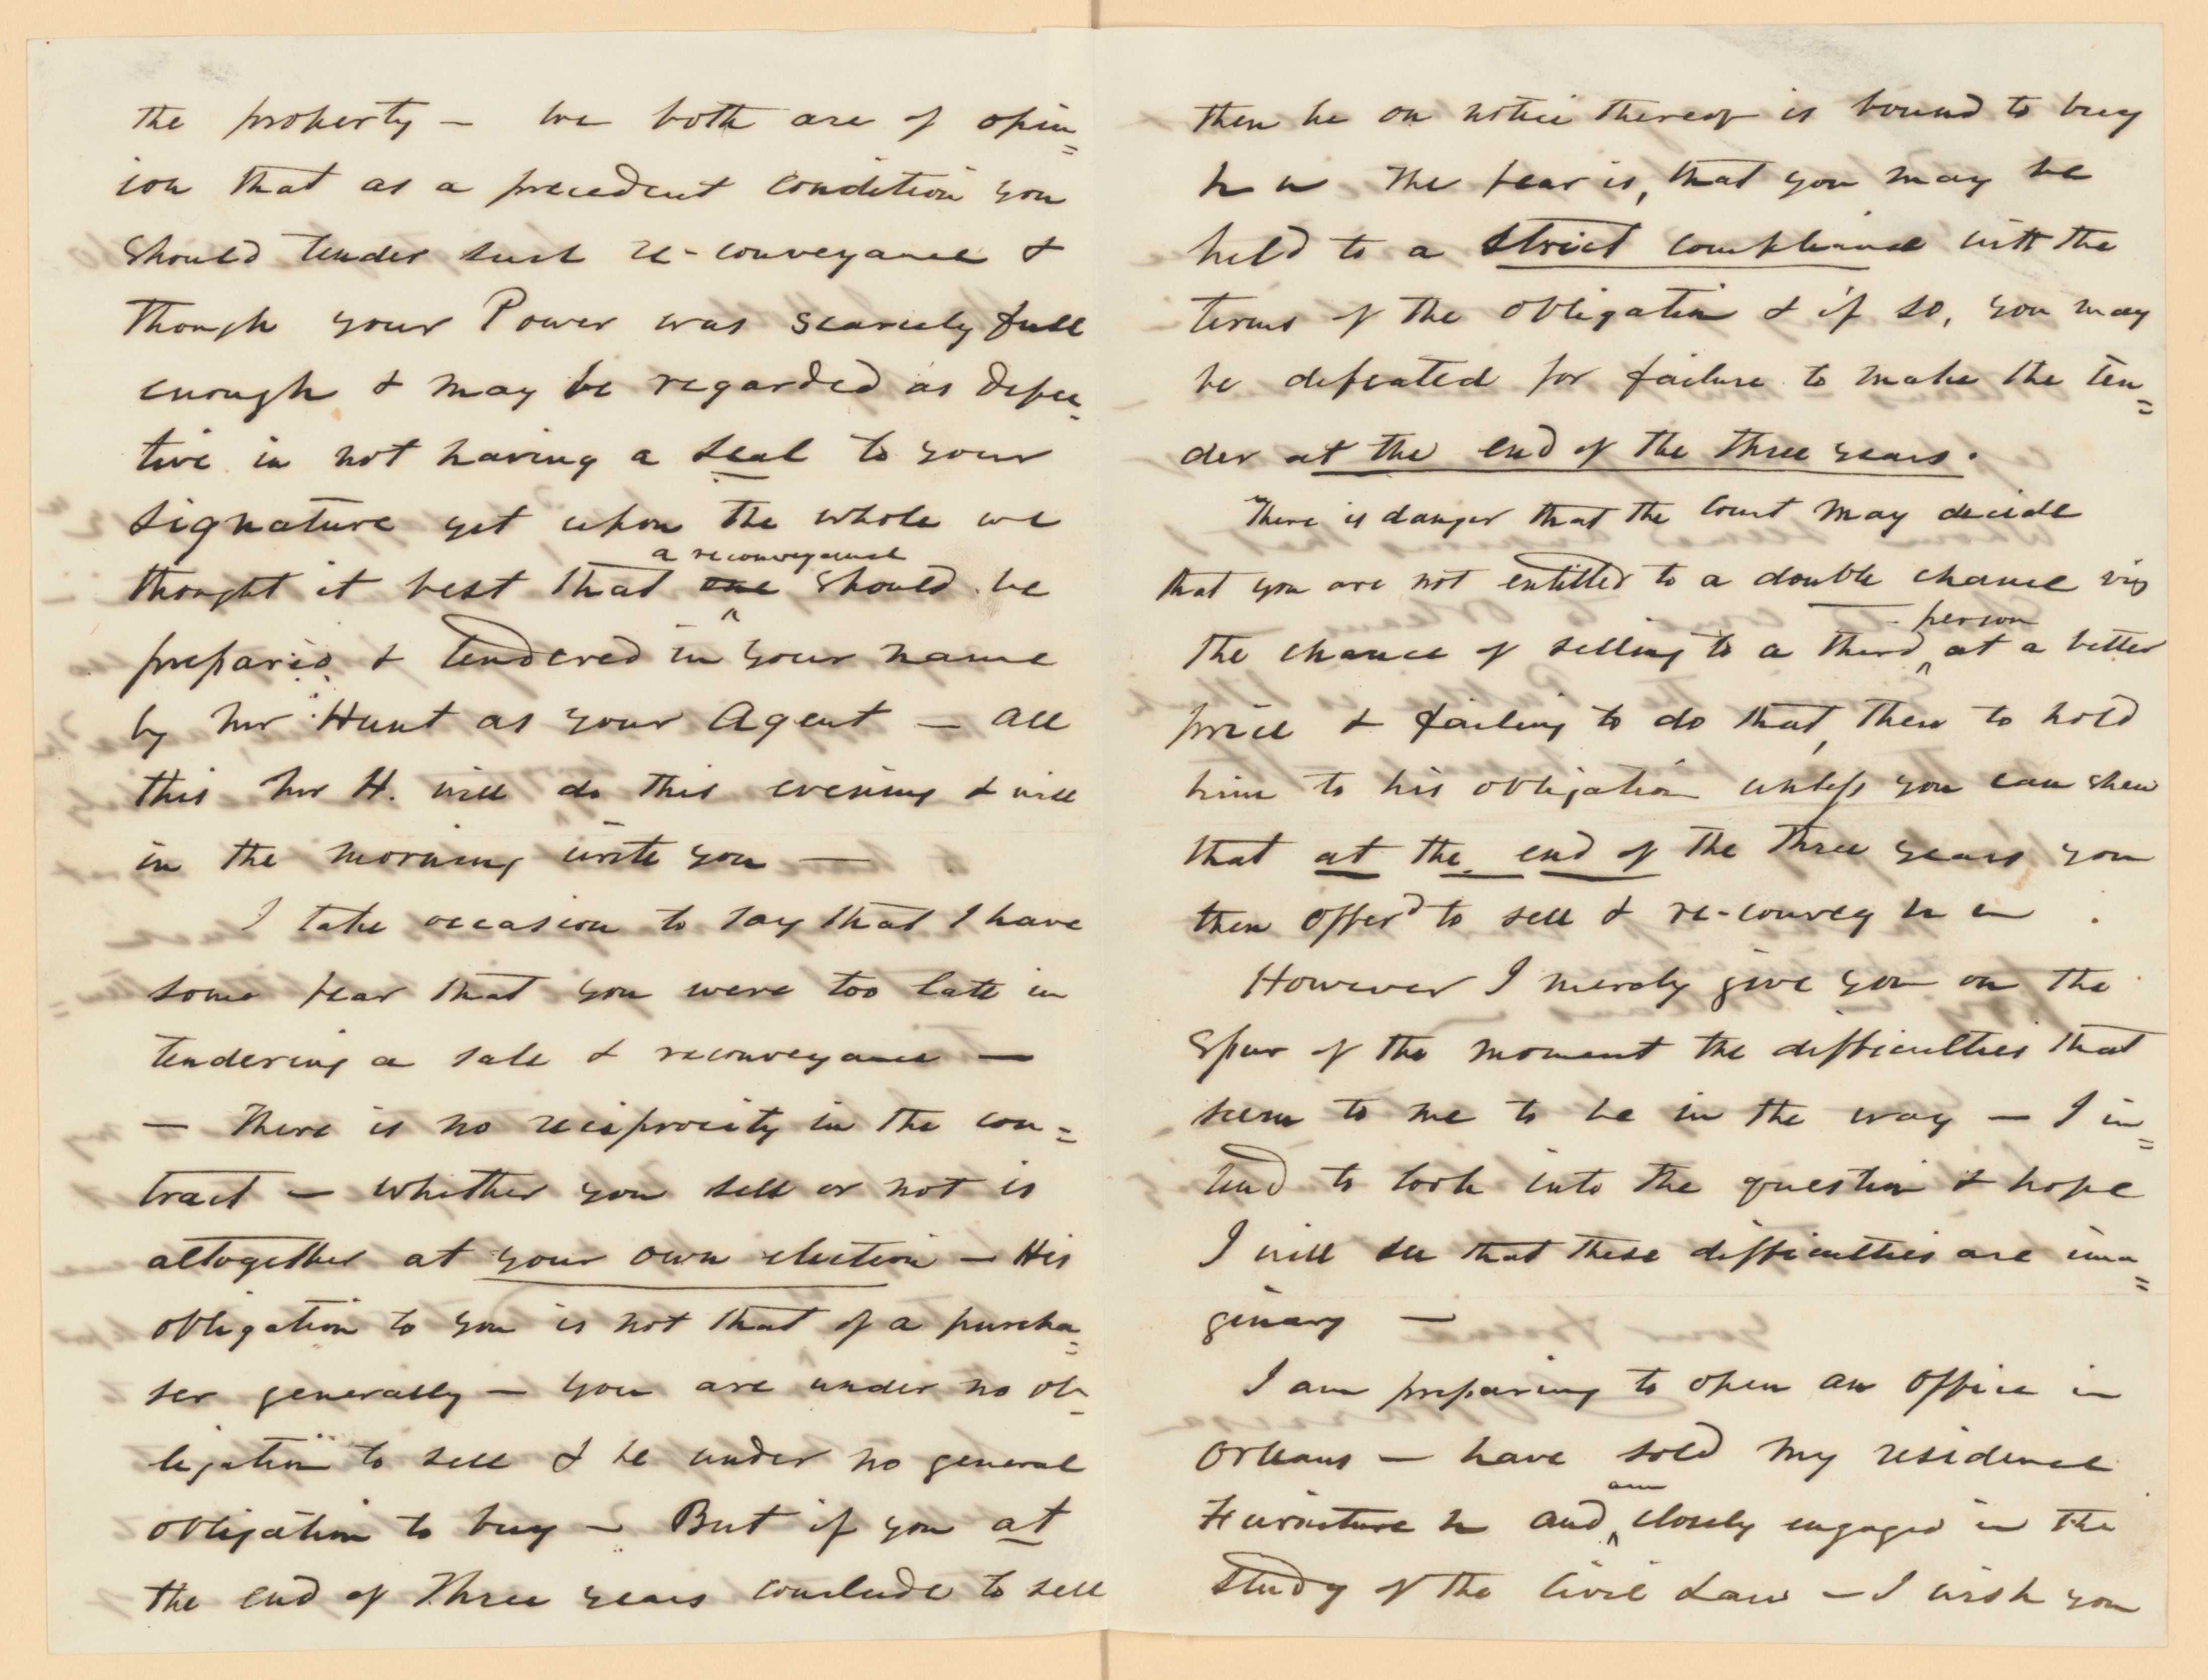 the property — we both are of opin=
ion that as a precedent condition you
should tender such re-conveyance &
though your Power was scarcely full
enough & may be regarded as defec=
tive in not having a seal to your
signature yet upon the whole we
thought it best that one a reconveyance should be
prepared & tendered in your name
by Mr Hunt as your Agent — all
this Mr H. will do this evening & will
in the morning write you —
I take occasion to say that I have
some fear that you were too late in
tendering a sale & reconveyance —
— There is no reciprocity in the con=
tract — whether you sell or not is
altogether at your own election — His
obligation to you is not that of a purcha=
ser generally — you are under no ob-
ligation to sell & he under no general
obligation to buy — But if you at
the end of three years conclude to sell
then he on notice thereof is bound to buy
The fear is, that you may be
held to a strict compliance with the
terms of the obligation & if so, you may
be defeated for failure to make the ten=
der at the end of the three years.
There is danger that the Court may decide
that you are not entitled to a double chance viz
the chance of selling to a third person at a better
price & failing to do that, then to hold
him to his obligation unless you can shew
that at the end of the three years you
then offerd to sell & re-convey
However I merely give you on the
spur of the moment the difficulties that
seem to me to be in the way — I in=
tend to look into the question & hope
I will see that these difficulties are ima=
ginary —
I am preparing to open an office in
Orleans — have sold my residence
Furniture and am closely engaged in the
study of the Civil Law — I wish you